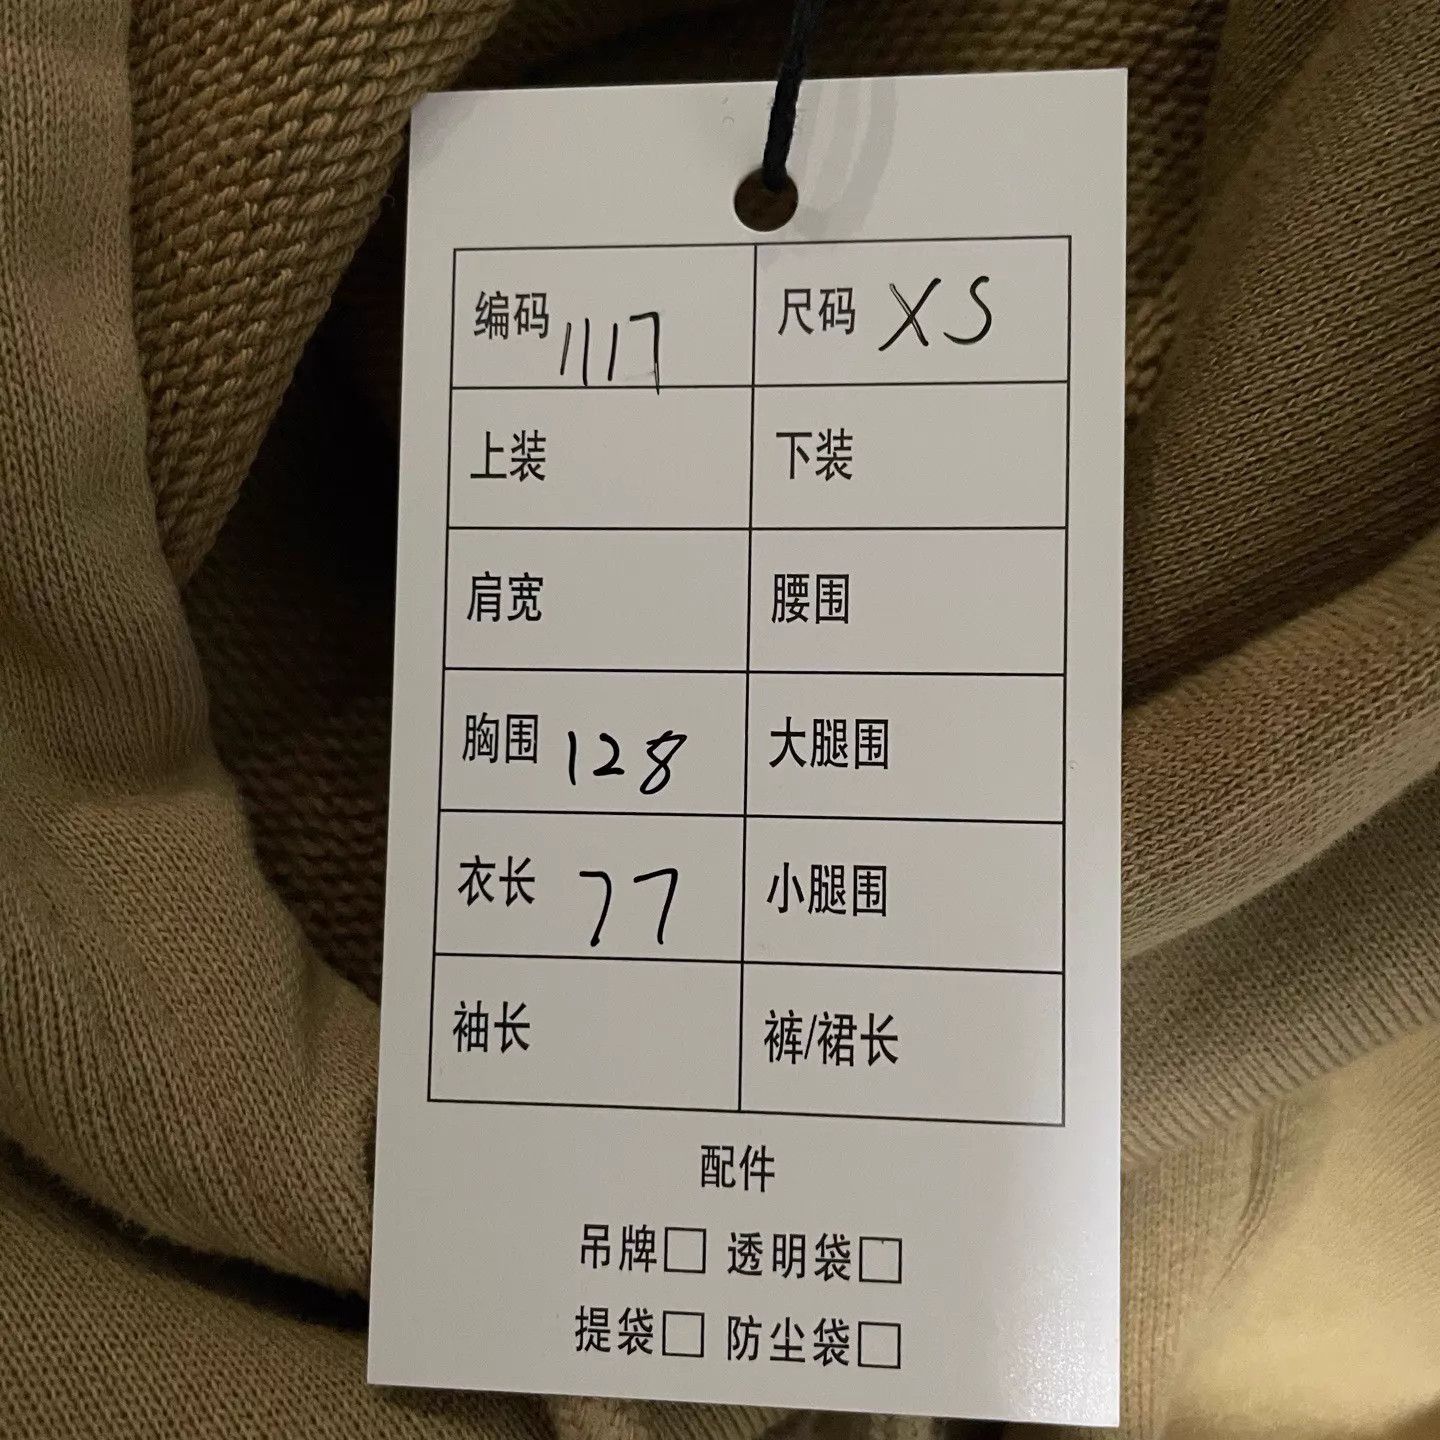 编码 1117 尺码 XS
上装 下装
肩宽 腰围
胸围 128 大腿围
衣长 77 小腿围
袖长 裤/裙长
配件
吊牌□ 透明袋□
提袋□ 防尘袋□